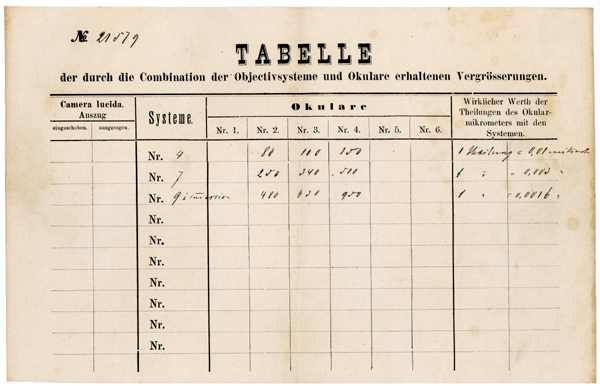 № 21579
TABELLE
der durch die Combination der Objectivsysteme und Okulare erhaltenen Vergrösserungen.
Camera lucida. Auszug
eingeschoben. ausgezogen.
Systeme.
Okulare
Nr. 1. Nr. 2. Nr. 3. Nr. 4. Nr. 5. Nr. 6.
Wirklicher Werth der
Theilungen des Okular-
mikrometers mit den
Systemen.
Nr. 4 80 100 150 1 Theilung = 0,01
Nr. 7 250 340 500 1 " = 0,003 "
Nr. 9 à Immersion 480 630 950 1 " = 0,0016 "
Nr.
Nr.
Nr.
Nr.
Nr.
Nr.
Nr.